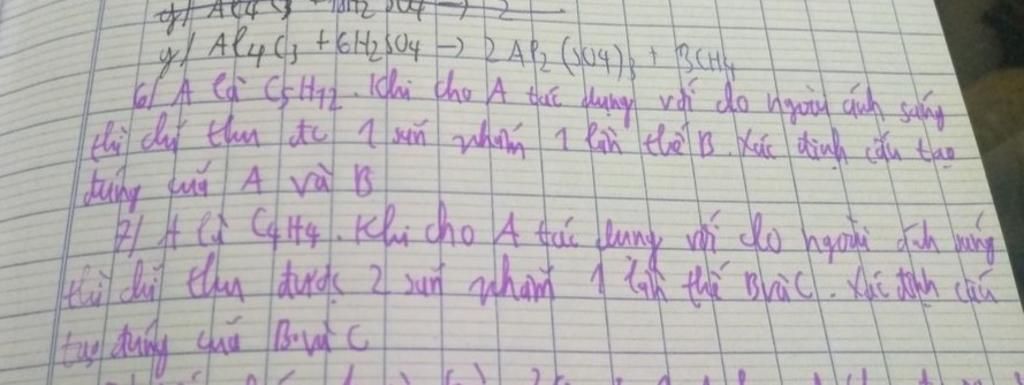 g/ Al4C3 + 6H2SO4 → 2Al2(SO4)3 + 3CH4
6/ A là C5H12. Khi cho A tác dụng với clo ngoài ánh sáng
thì chỉ thu đc 1 sản phẩm 1 lần thế B. Xác định cấu tạo
đúng của A và B
7/ A là C4H4. Khi cho A tác dụng với clo ngoài ánh sáng
thì chỉ thu được 2 sản phẩm 1 lần thế B và C. Xác định cấu
tạo đúng của B và C